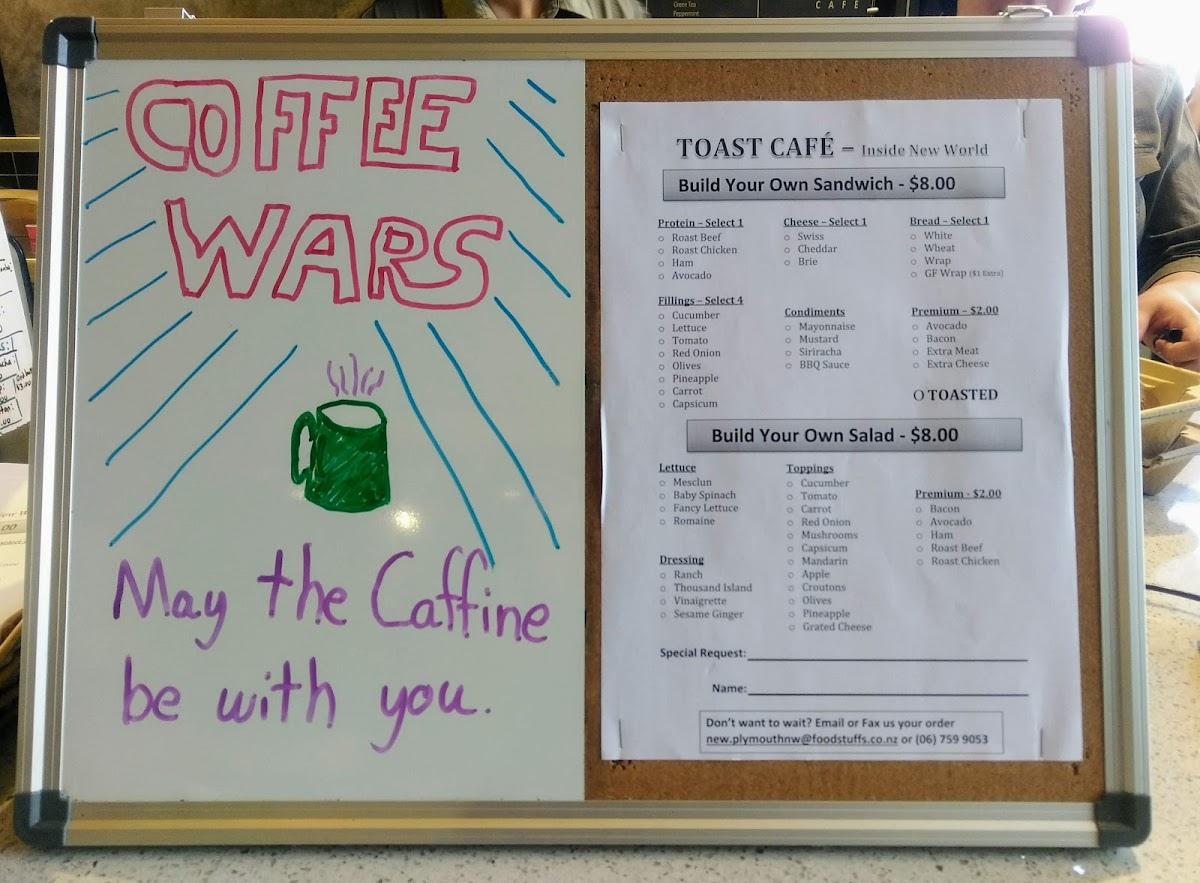 Green Tea
Peppermint
CAFE
COFFEE
WARS
May the Caffine
be with you.
TOAST CAFÉ – Inside New World
Build Your Own Sandwich - $8.00
Protein – Select 1
o Roast Beef
o Roast Chicken
o Ham
o Avocado
Cheese – Select 1
o Swiss
o Cheddar
o Brie
Bread – Select 1
o White
o Wheat
o Wrap
o GF Wrap ($1 Extra)
Fillings – Select 4
o Cucumber
o Lettuce
o Tomato
o Red Onion
o Olives
o Pineapple
o Carrot
o Capsicum
Condiments
o Mayonnaise
o Mustard
o Siriracha
o BBQ Sauce
Premium – $2.00
o Avocado
o Bacon
o Extra Meat
o Extra Cheese
O TOASTED
Build Your Own Salad - $8.00
Lettuce
o Mesclun
o Baby Spinach
o Fancy Lettuce
o Romaine
Dressing
o Ranch
o Thousand Island
o Vinaigrette
o Sesame Ginger
Toppings
o Cucumber
o Tomato
o Carrot
o Red Onion
o Mushrooms
o Capsicum
o Mandarin
o Apple
o Croutons
o Olives
o Pineapple
o Grated Cheese
Premium - $2.00
o Bacon
o Avocado
o Ham
o Roast Beef
o Roast Chicken
Special Request:
Name:
Don't want to wait? Email or Fax us your order
new.plymouthnw@foodstuffs.co.nz or (06) 759 9053